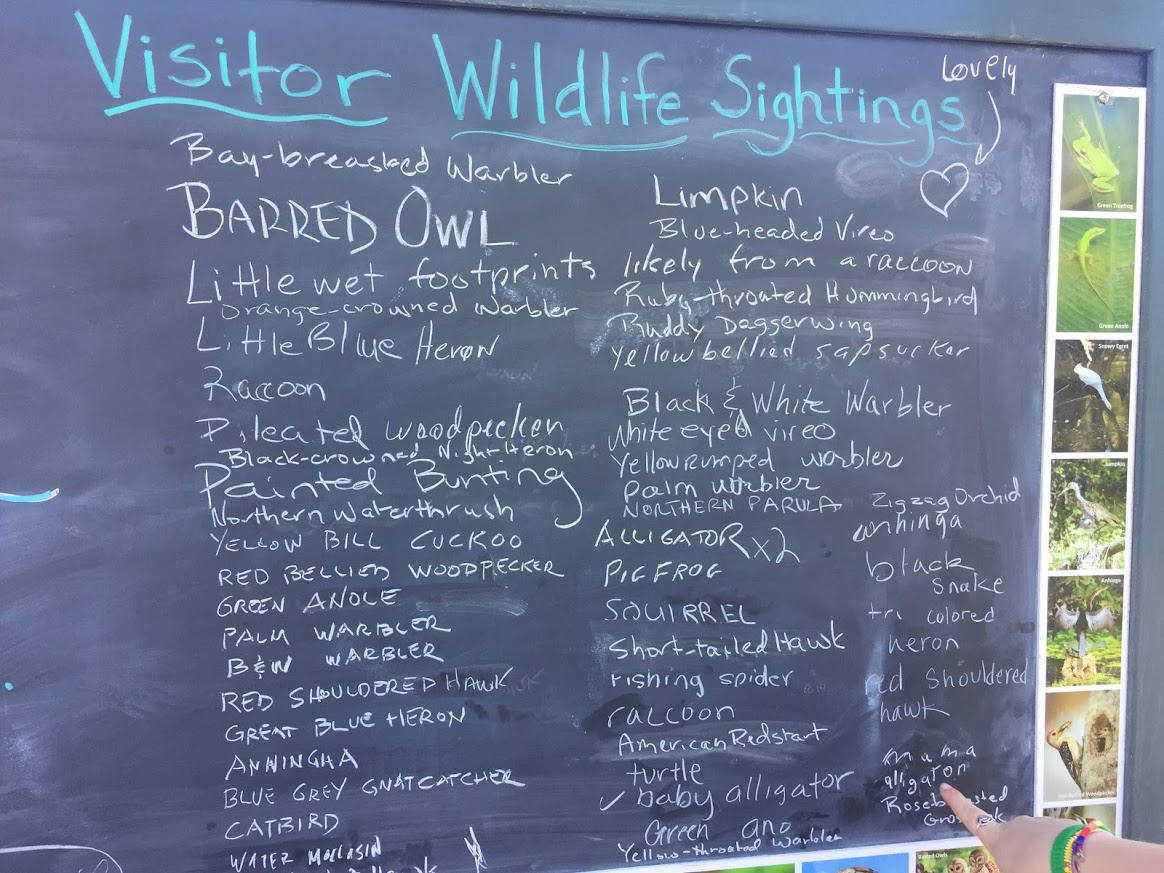 Visitor Wildlife Sightings
Lovely
Bay-breasted Warbler
BARRED OWL
Little wet footprints likely from a raccoon
Orange-crowned Warbler
Little Blue Heron
Raccoon
Pileated woodpecker
Black-crowned Night-Heron
Painted Bunting
Northern Waterthrush
YELLOW BILL CUCKOO
RED BELLIED WOODPECKER
GREEN ANOLE
PALM WARBLER
B&W WARBLER
RED SHOULDERED HAWK
GREAT BLUE HERON
ANNINGHA
BLUE GREY GNATCATCHER
CATBIRD
WATER MOCCASIN
Limpkin
Blue-headed Vireo
Ruby-throated Hummingbird
Ruddy Daggerwing
Yellowbellied sapsucker
Black & White Warbler
White eyed vireo
Yellowrumped warbler
Palm warbler
NORTHERN PARULA
ALLIGATOR x2
PIG FROG
SQUIRREL
Short-tailed Hawk
Fishing spider
raccoon
American Redstart
turtle
✓ baby alligator
Green ano
Yellow-throated Warbler
Zigzag Orchid
anhinga
black
snake
tri colored
heron
red shouldered
hawk
mama
alligator
Green Treefrog
Green Anole
Snowy Egret
Limpkin
Anhinga
Barred Owls